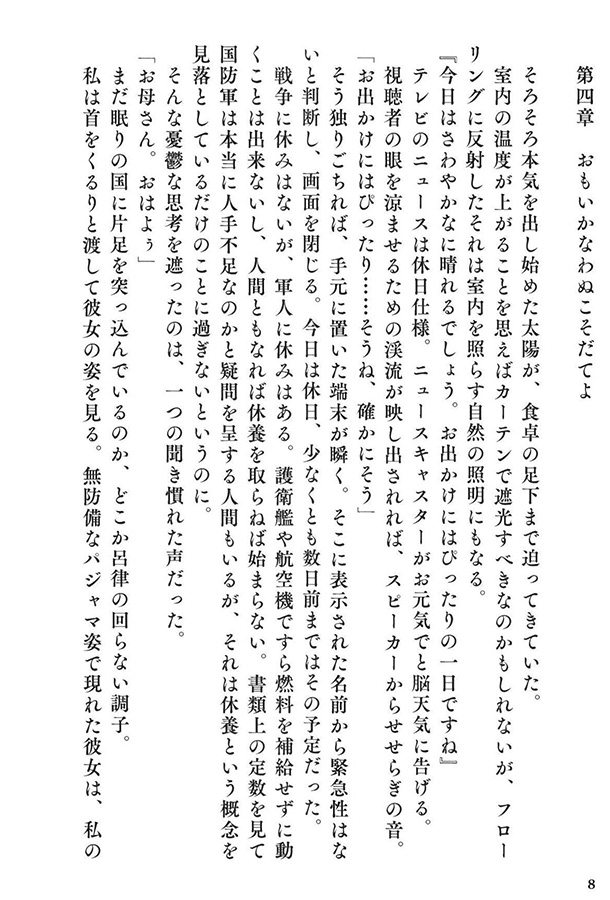 第四章　おもいかなわぬこそだてよ
そろそろ本気を出し始めた太陽が、食卓の足下まで迫ってきていた。
室内の温度が上がることを思えばカーテンで遮光すべきなのかもしれないが、フロー
リングに反射したそれは室内を照らす自然の照明にもなる。
『今日はさわやかなに晴れるでしょう。お出かけにはぴったりの一日ですね』
テレビのニュースは休日仕様。ニュースキャスターがお元気でと脳天気に告げる。
視聴者の眼を涼ませるための渓流が映し出されれば、スピーカーからせせらぎの音。
「お出かけにはぴったり……そうね、確かにそう」
そう独りごちれば、手元に置いた端末が瞬く。そこに表示された名前から緊急性はな
いと判断し、画面を閉じる。今日は休日、少なくとも数日前まではその予定だった。
戦争に休みはないが、軍人に休みはある。護衛艦や航空機ですら燃料を補給せずに動
くことは出来ないし、人間ともなれば休養を取らねば始まらない。書類上の定数を見て
国防軍は本当に人手不足なのかと疑問を呈する人間もいるが、それは休養という概念を
見落としているだけのことに過ぎないというのに。
そんな憂鬱な思考を遮ったのは、一つの聞き慣れた声だった。
「お母さん。おはよぅ」
まだ眠りの国に片足を突っ込んでいるのか、どこか呂律の回らない調子。
私は首をくるりと渡して彼女の姿を見る。無防備なパジャマ姿で現れた彼女は、私の
8